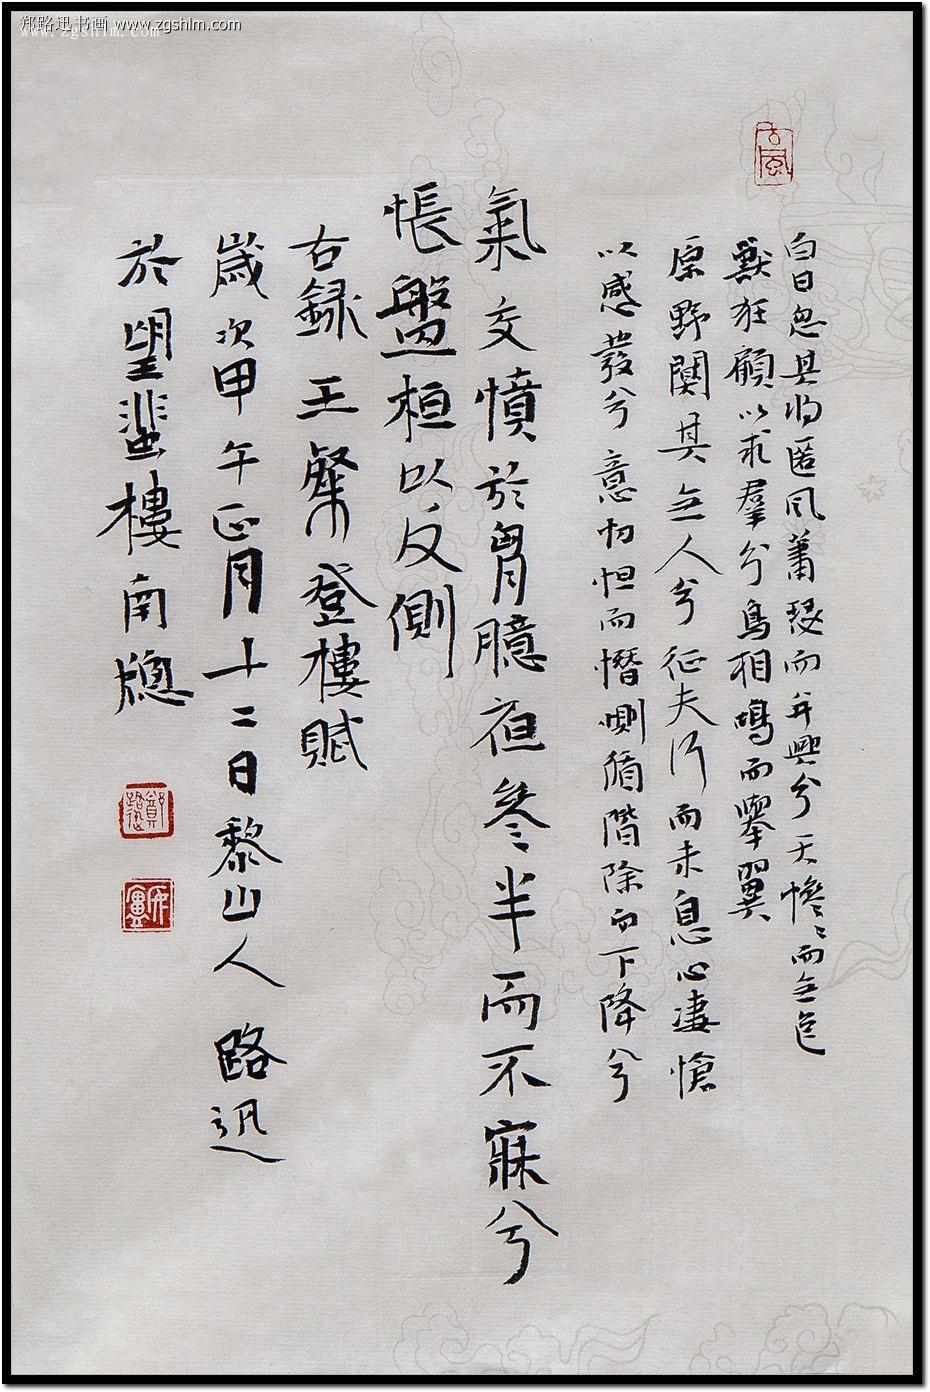 郑路迅书画 www.zgshlm.com
www.zgshlm.com
古風
白日忽其将匿风萧瑟而并興兮天惨〻而无色
獸狂顧以求羣兮鳥相鳴而舉翼
原野闃其无人兮征夫行而未息心凄愴
以感發兮意忉怛而憯惻循階除而下降兮
氣交憤於胷臆夜叅半而不寐兮
悵盤桓以反側
右録王粲登樓賦
歲次甲午正月十二日黎山人路迅
於望蜚樓南牕